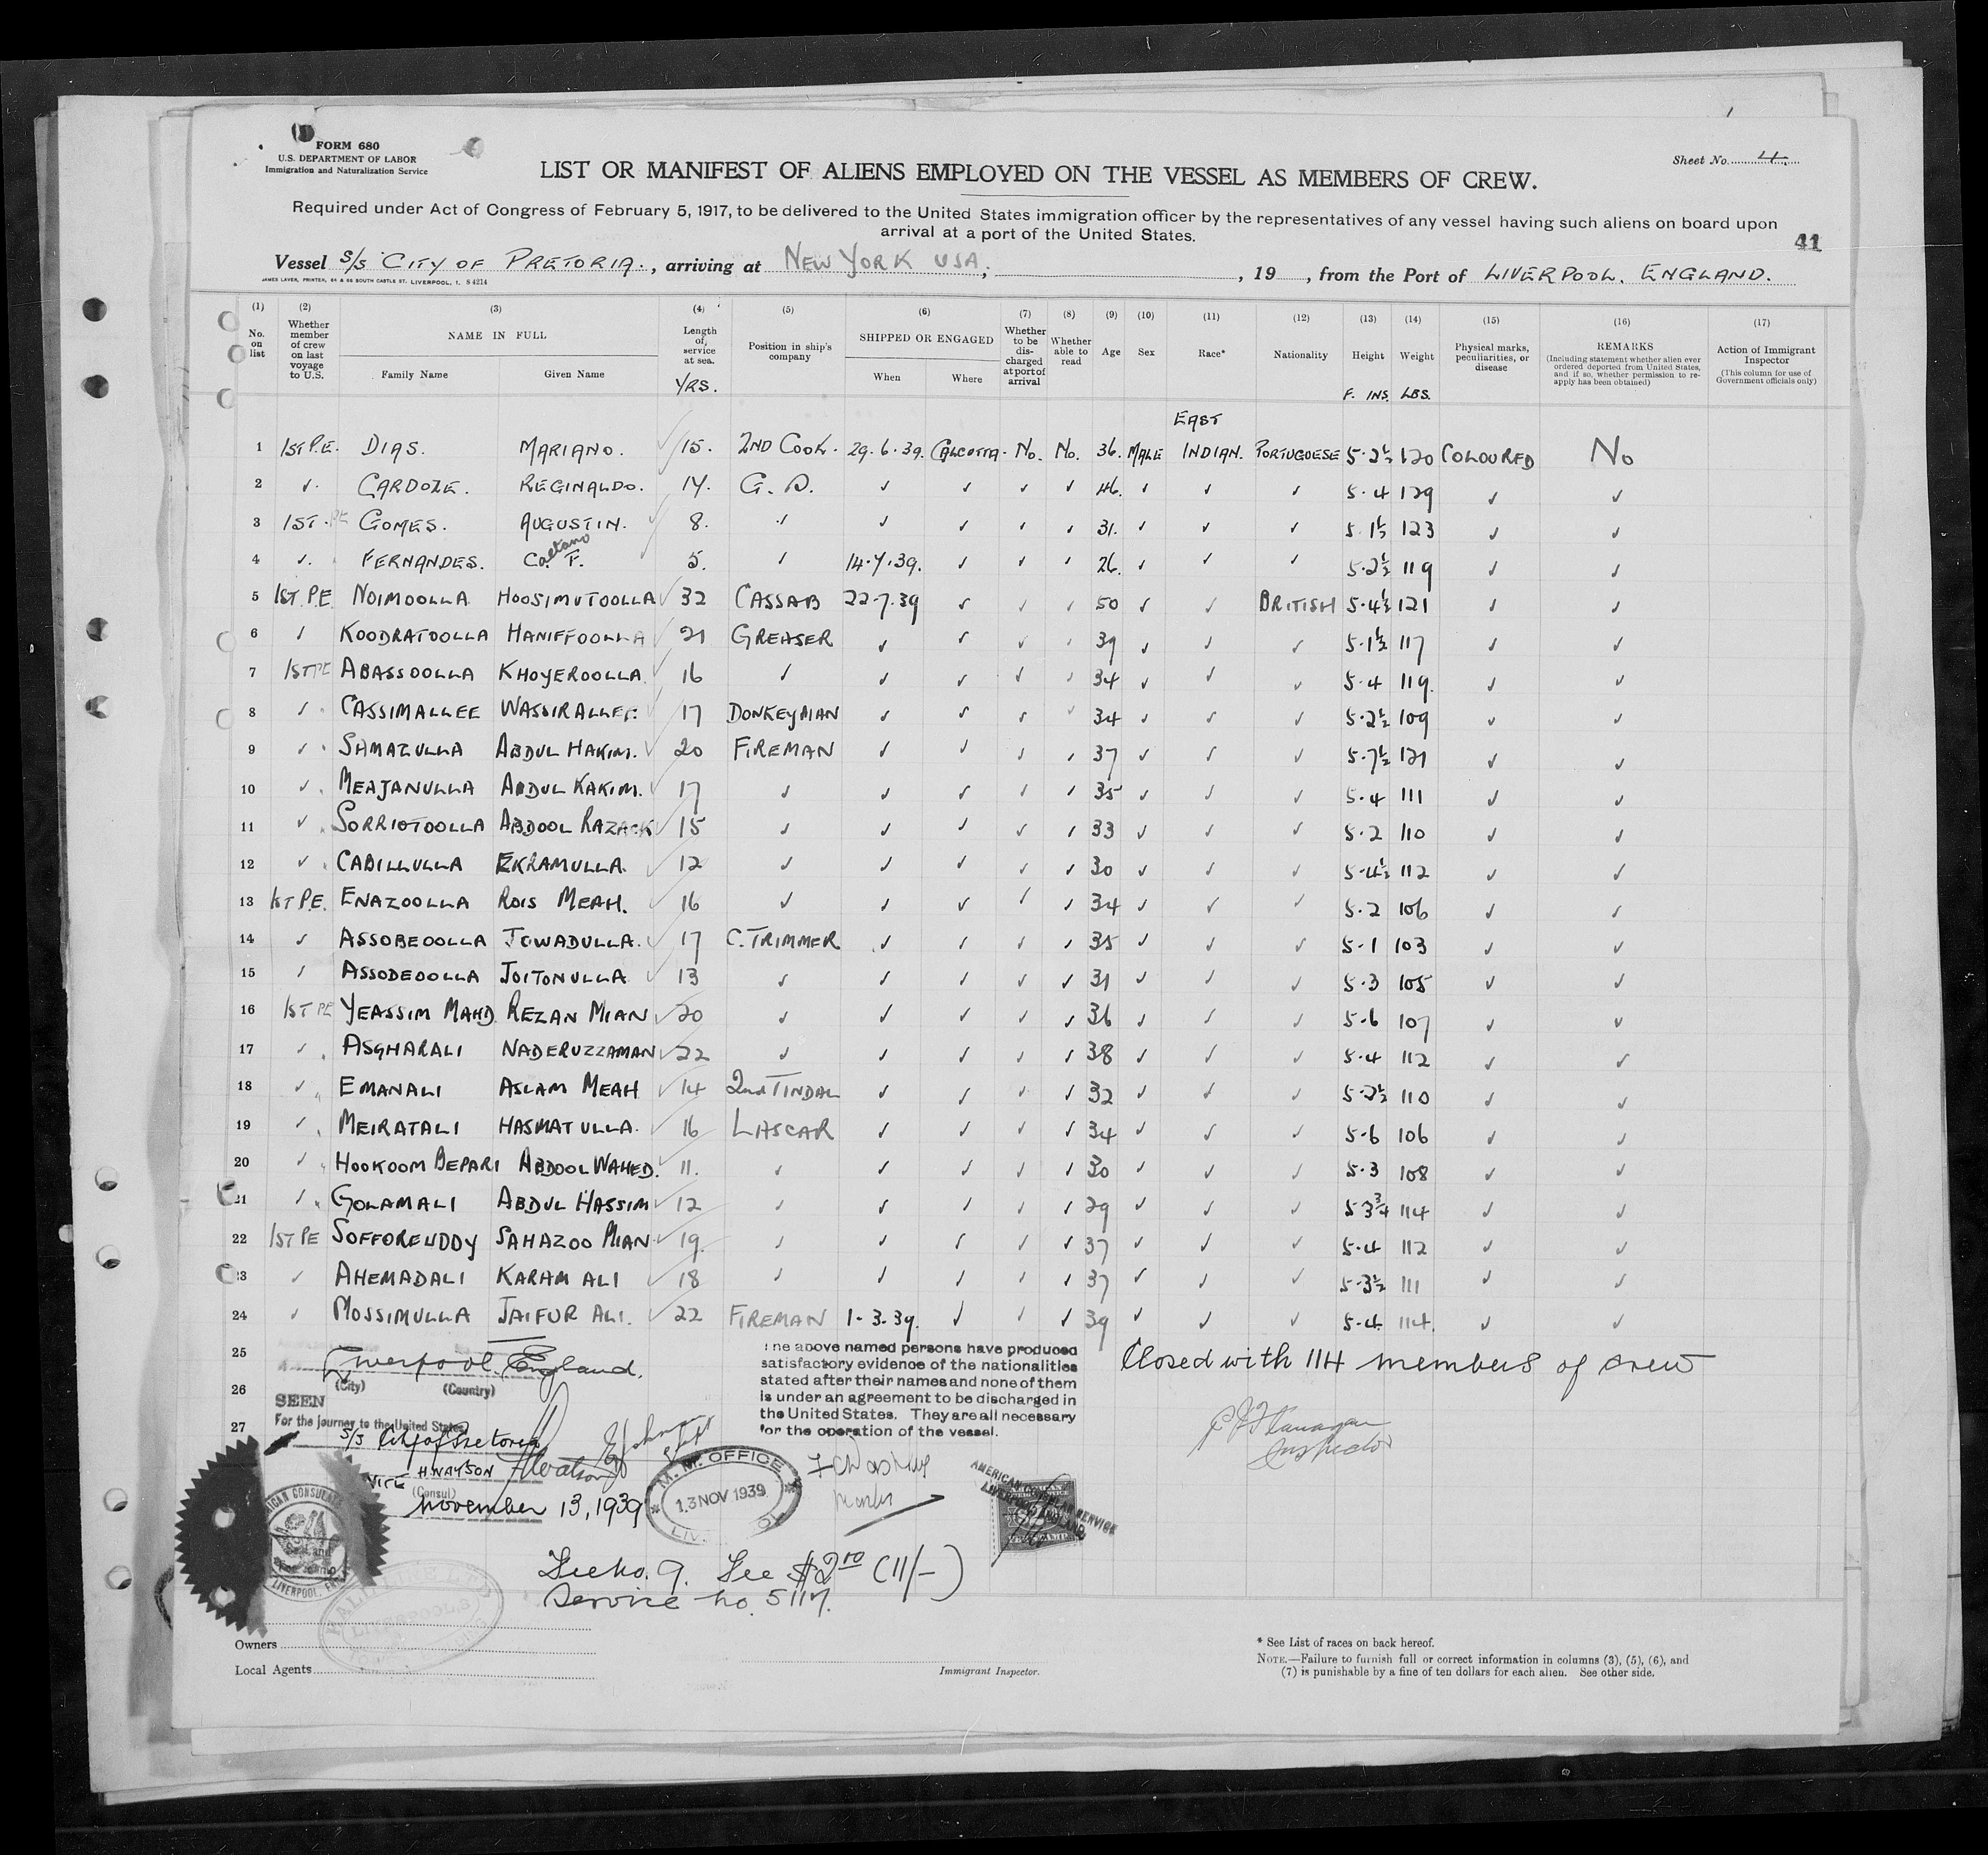 FORM 680
U.S. DEPARTMENT OF LABOR
Immigration and Naturalization Service
Sheet No. 4.
LIST OR MANIFEST OF ALIENS EMPLOYED ON THE VESSEL AS MEMBERS OF CREW.
Required under Act of Congress of February 5, 1917, to be delivered to the United States immigration officer by the representatives of any vessel having such aliens on board upon
arrival at a port of the United States.
41
Vessel S/S CITY OF PRETORIA., arriving at NEW YORK USA; , 19 , from the Port of LIVERPOOL. ENGLAND.
JAMES LAVER, PRINTER, 64 & 66 SOUTH CASTLE ST. LIVERPOOL, 1. S 4214
(1) No. on list
(2) Whether member of crew on last voyage to U.S.
(3) NAME IN FULL
Family Name Given Name
(4) Length of service at sea. YRS.
(5) Position in ship's company
(6) SHIPPED OR ENGAGED
When Where
(7) Whether to be discharged at port of arrival
(8) Whether able to read
(9) Age
(10) Sex
(11) Race*
(12) Nationality
(13) Height F. INS.
(14) Weight LBS.
(15) Physical marks, peculiarities, or disease
(16) REMARKS (Including statement whether alien ever ordered deported from United States, and if so, whether permission to re-apply has been obtained)
(17) Action of Immigrant Inspector (This column for use of Government officials only)
EAST
1 1ST P.E. DIAS. MARIANO. ✓ 15. 2ND COOK. 29.6.39. CALCUTTA. No. No. 36. MALE INDIAN. PORTUGUESE 5.2½ 120 COLOURED No
2 ✓. CARDOZE. REGINALDO. 14. G.S. ✓ ✓ ✓ ✓ 46. ✓ ✓ ✓ 5.4 129 ✓ ✓
3 1ST. PE GOMES. AUGUSTIN. ✓ 8. ✓ ✓ ✓ ✓ ✓ 31. ✓ ✓ ✓ 5.1½ 123 ✓ ✓
4 ✓. FERNANDES. Caetano F. ✓ 5. ✓ 14.7.39. ✓ ✓ ✓ 26. ✓ ✓ ✓ 5.2½ 119 ✓ ✓
5 1ST. P.E. NOIMOOLLA HOOSIMUTOOLLA ✓ 32 CASSAB 22.7.39 ✓ ✓ ✓ 50 ✓ ✓ BRITISH 5.4½ 121 ✓ ✓
6 ✓ KOODRATOOLLA HANIFFOOLLA ✓ 21 GREASER ✓ ✓ ✓ ✓ 39 ✓ ✓ ✓ 5.1½ 117 ✓ ✓
7 1ST PE ABASSOOLLA KHOYEROOLLA ✓ 16 ✓ ✓ ✓ ✓ ✓ 34 ✓ ✓ ✓ 5.4 119. ✓ ✓
8 ✓ CASSIMALLEE WASSIRALLEE ✓ 17 DONKEYMAN ✓ ✓ ✓ ✓ 34 ✓ ✓ ✓ 5.2½ 109 ✓ ✓
9 ✓ SAMAZULLA ABDUL HAKIM. ✓ 20 FIREMAN ✓ ✓ ✓ ✓ 37 ✓ ✓ ✓ 5.7½ 121 ✓ ✓
10 ✓ MEAJANULLA ABDUL KAKIM. ✓ 17 ✓ ✓ ✓ ✓ ✓ 35 ✓ ✓ ✓ 5.4 111 ✓ ✓
11 ✓ SORRIOTOOLLA ABDOOL RAZACK ✓ 15 ✓ ✓ ✓ ✓ ✓ 33 ✓ ✓ ✓ 5.2 110 ✓ ✓
12 ✓ CABILLULLA EKRAMULLA. ✓ 12 ✓ ✓ ✓ ✓ ✓ 30 ✓ ✓ ✓ 5.4½ 112 ✓ ✓
13 1ST P.E. ENAZOOLLA ROIS MEAH. ✓ 16 ✓ ✓ ✓ ✓ ✓ 34 ✓ ✓ ✓ 5.2 106 ✓ ✓
14 ✓ ASSOBEOOLLA JOWADULLA. ✓ 17 C. TRIMMER ✓ ✓ ✓ ✓ 35 ✓ ✓ ✓ 5.1 103 ✓ ✓
15 ✓ ASSODEOOLLA JOITONULLA ✓ 13 ✓ ✓ ✓ ✓ ✓ 31 ✓ ✓ ✓ 5.3 105 ✓ ✓
16 1ST PE YEASSIM MAHD. REZAN MIAN ✓ 20 ✓ ✓ ✓ ✓ ✓ 36 ✓ ✓ ✓ 5.6 107 ✓ ✓
17 ✓ ASGHARALI NADERUZZAMAN ✓ 22 ✓ ✓ ✓ ✓ ✓ 38 ✓ ✓ ✓ 5.4 112 ✓ ✓
18 ✓ EMANALI ASLAM MEAH ✓ 14 2nd TINDAL ✓ ✓ ✓ ✓ 32 ✓ ✓ ✓ 5.2½ 110 ✓ ✓
19 ✓ MEIRATALI HASMATULLA. ✓ 16 LASCAR ✓ ✓ ✓ ✓ 34 ✓ ✓ ✓ 5.6 106 ✓ ✓
20 ✓ HOOKOOM BEPARI ABDOOL WAHED. ✓ 11. ✓ ✓ ✓ ✓ ✓ 30 ✓ ✓ ✓ 5.3 108 ✓ ✓
21 ✓ GOLAMALI ABDUL HASSIM ✓ 12 ✓ ✓ ✓ ✓ ✓ 29 ✓ ✓ ✓ 5 3¾ 114 ✓ ✓
22 1ST PE SOFFOREUDDY SAHAZOO MIAN ✓ 19. ✓ ✓ ✓ ✓ ✓ 37 ✓ ✓ ✓ 5.4 112 ✓ ✓
23 ✓ AHEMADALI KARAM ALI ✓ 18 ✓ ✓ ✓ ✓ ✓ 37 ✓ ✓ ✓ 5.3½ 111 ✓ ✓
24 ✓ MOSSIMULLA JAIFUR ALI. ✓ 22 FIREMAN 1.3.39. ✓ ✓ ✓ 39 ✓ ✓ ✓ 5.4. 114. ✓ ✓
25
26
27
Liverpool. England.
(City) (Country)
SEEN
For the journey to the United States
S/S City of Pretoria
VICE H. WATSON
(Consul)
November 13, 1939
M.M. OFFICE
13 NOV 1939
The above named persons have produced
satisfactory evidence of the nationalities
stated after their names and none of them
is under an agreement to be discharged in
the United States. They are all necessary
for the operation of the vessel.
Master
Closed with 114 members of crew
Inspector
AMERICAN CONSULAR SERVICE
LIVERPOOL, ENGLAND
No. 9. Fee $2.00 (11/-)
Service no. 5117.
Owners
Local Agents
Immigrant Inspector.
* See List of races on back hereof.
NOTE.—Failure to furnish full or correct information in columns (3), (5), (6), and
(7) is punishable by a fine of ten dollars for each alien. See other side.